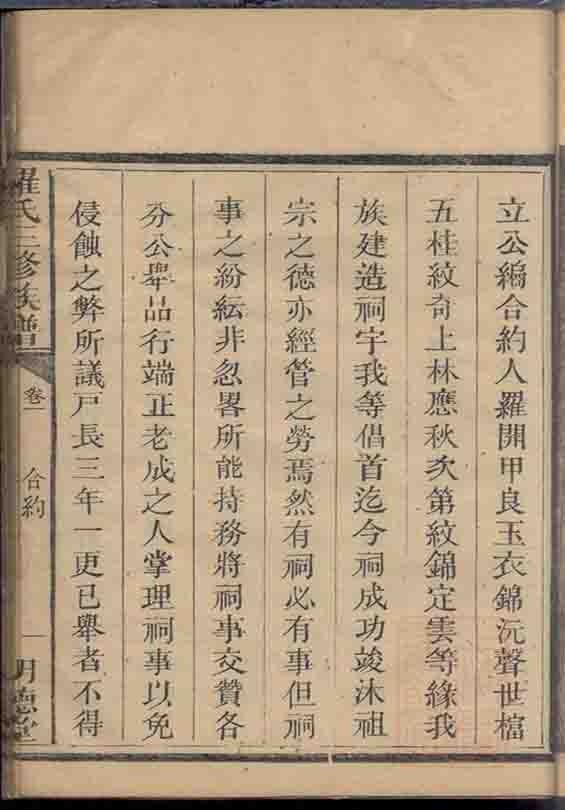 立公編合約人羅開甲良玉衣錦沅聲世檔
五桂紋奇上林應秋次第紋錦定雲等緣我
族建造祠宇我等倡首迄今祠成功竣沐祖
宗之德亦經管之勞焉然有祠必有事但祠
事之紛紜非忽畧所能持務將祠事交贊各
分公舉品行端正老成之人掌理祠事以免
侵蝕之弊所議戸長三年一更已舉者不得
羅氏三修族譜
卷一
合約
一
明德堂